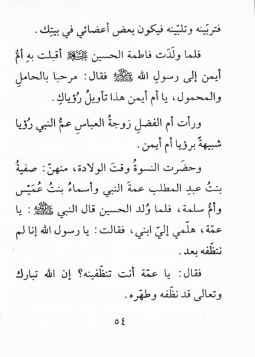 فتربّينه وتلبّينه فيكون بعض أعضائي في بيتك.
فلما ولَدَت فاطمة الحسين ﷺ أقبلت به أمُّ
أيمن إلى رسول الله ﷺ فقال: مرحبا بالحامل
والمحمول، يا أم أيمن هذا تأويلُ رُؤياكِ.
ورأت أم الفضل زوجةُ العباسِ عمُّ النبي رُؤيا
شبيهةً برؤيا أم أيمن.
وحضَرت النسوةُ وقتَ الولادة، منهنّ: صفيةُ
بنتُ عبدِ المطلب عمةُ النبي وأسماءُ بنتُ عُمَيْس
وأمُّ سلمة، فلما وُلد الحسين قال النبي ﷺ: يا
عمّة، هلُمي إليّ ابني، فقالت: يا رسول الله إنا لم
ننظّفه بعد.
فقال: يا عمّة أنت تنظّفينه؟ إن الله تبارك
وتعالى قد نظّفه وطهّره.
٥٤